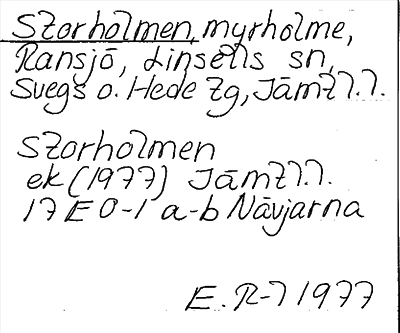 Storholmen, myrholme,
Ransjö, Linsells sn,
Svegs o. Hede tg, Jämtl.l.
Storholmen
ek (1977) Jämtl.l.
17E 0-1 a-b Nävjarna
E. R-l 1977